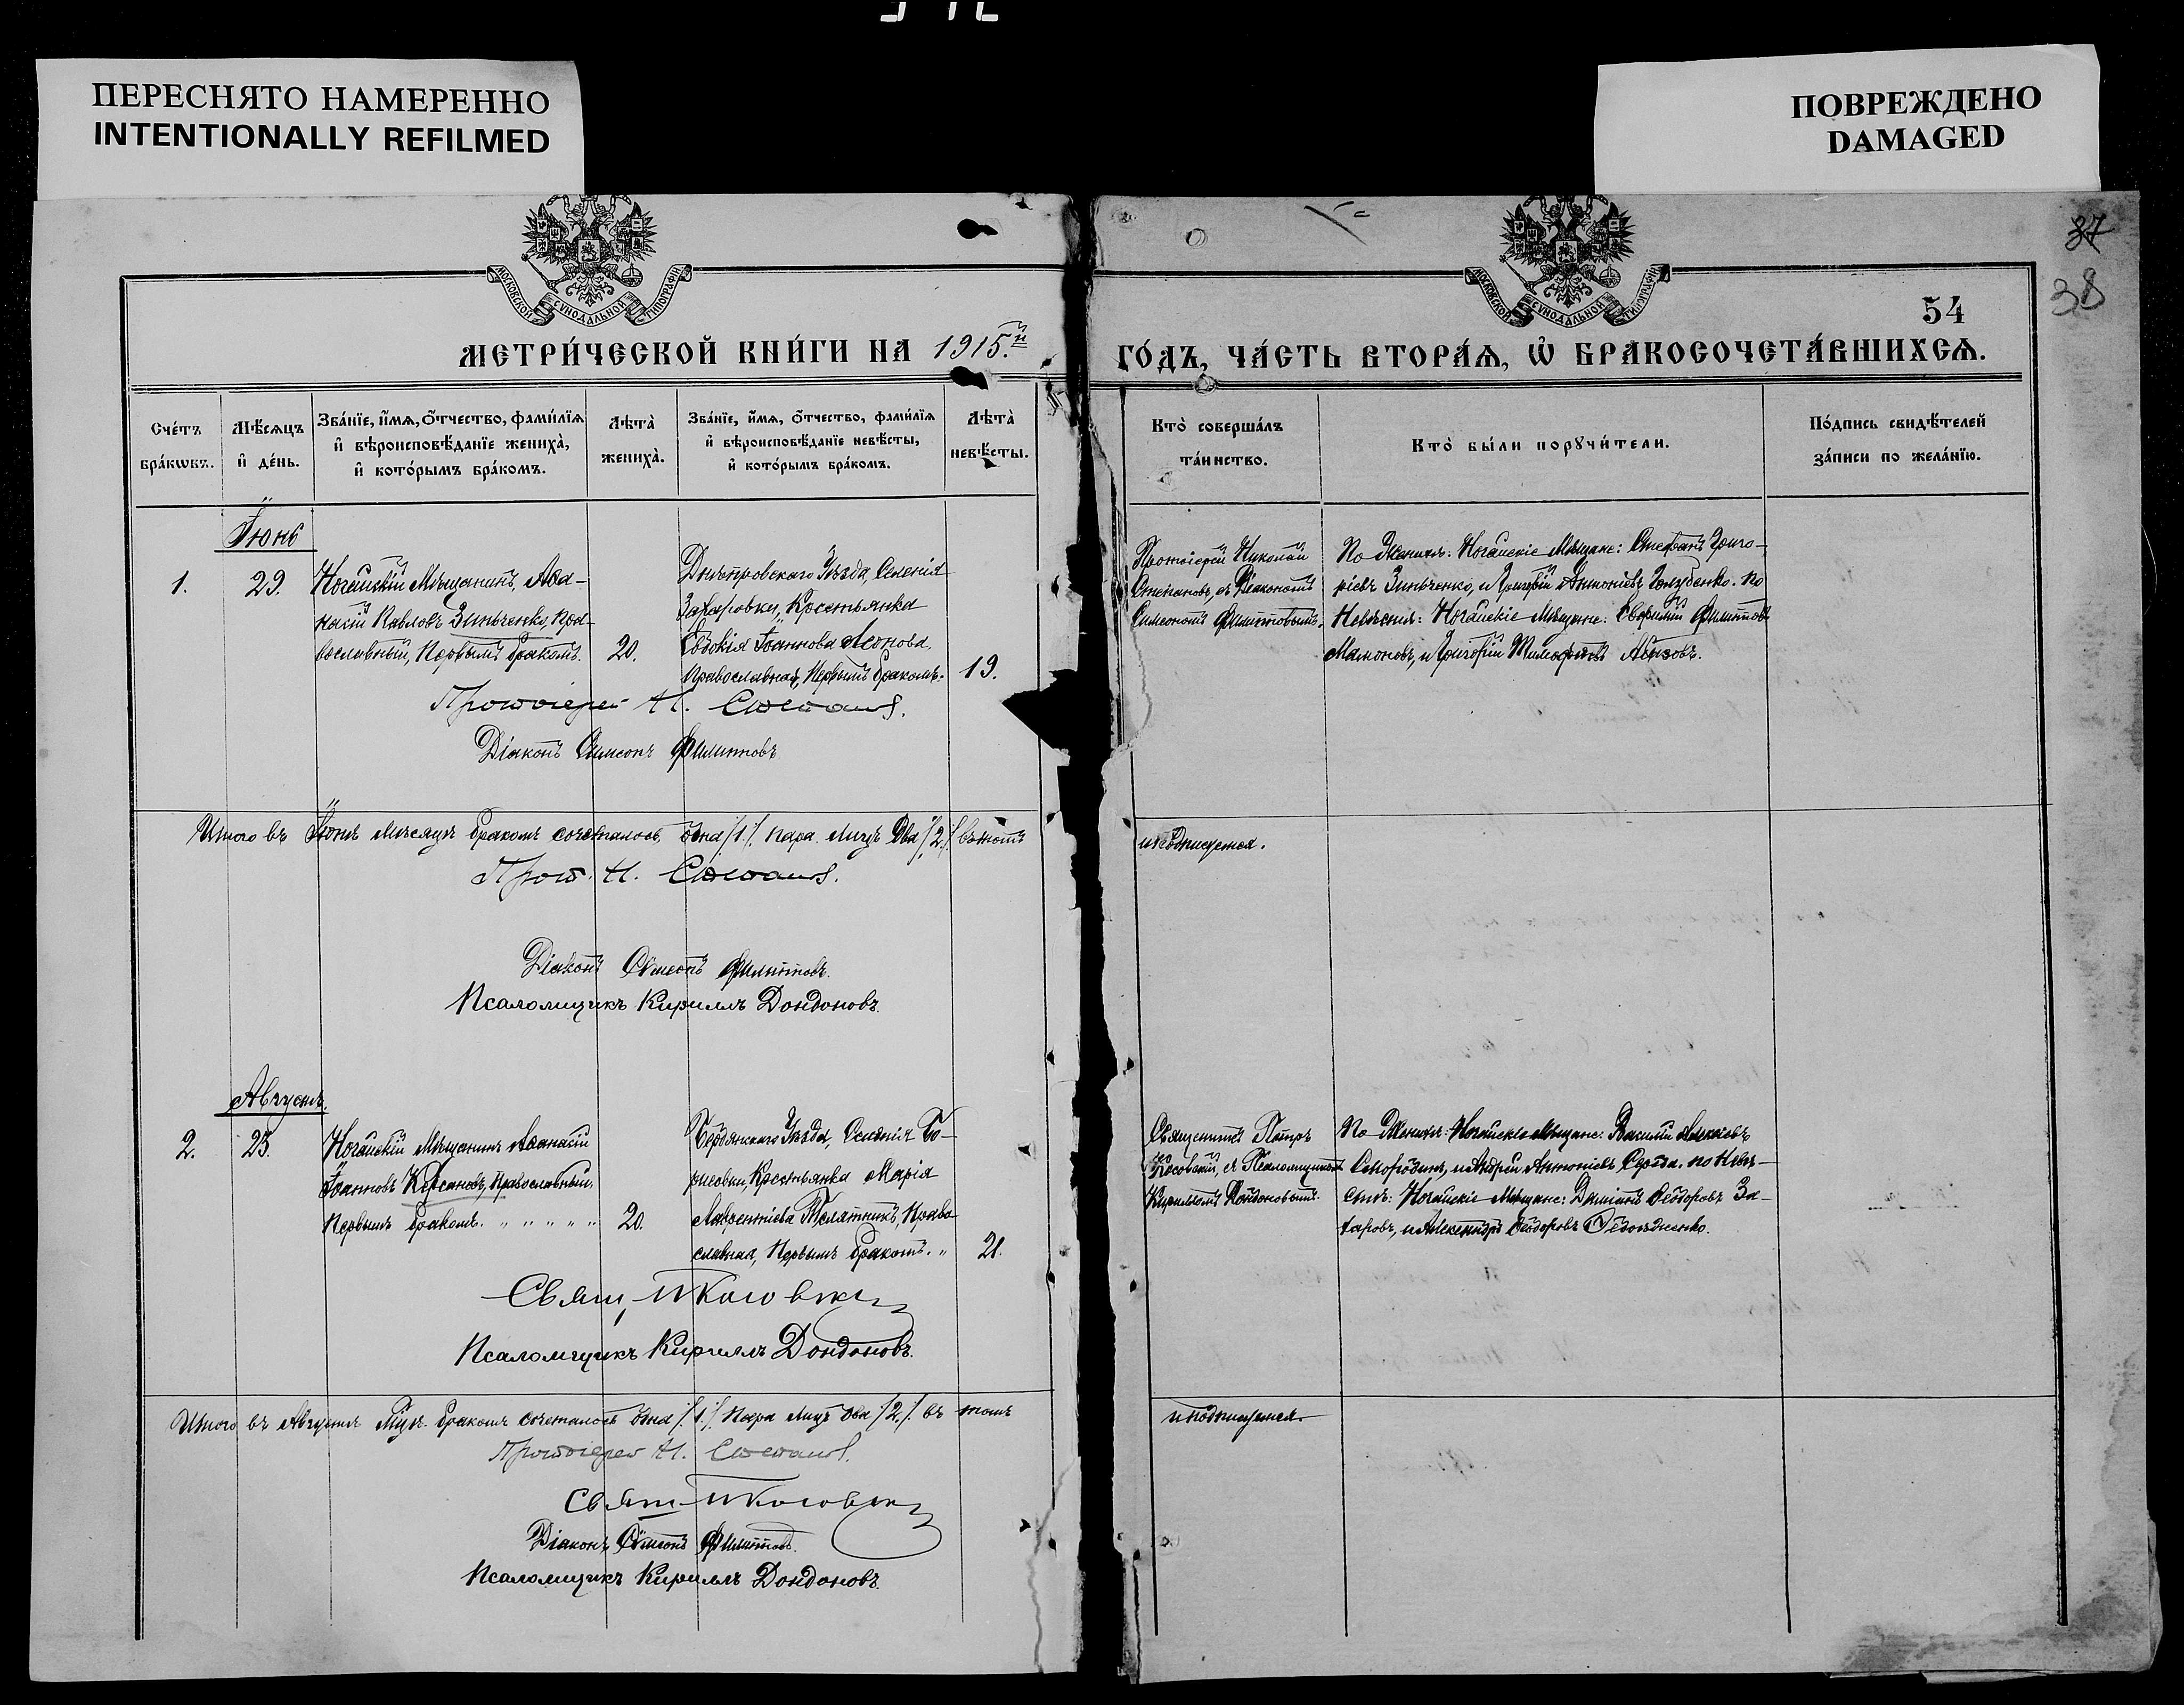 ПЕРЕСНЯТО НАМЕРЕННО
INTENTIONALLY REFILMED
ПОВРЕЖДЕНО
DAMAGED
МОСКОВСКОЙ СѴНОДАЛЬНОЙ ТИПОГРАФІИ
МОСКОВСКОЙ СѴНОДАЛЬНОЙ ТИПОГРАФІИ
37
38
54
МЕТРИ́ЧЕСКОЙ КНИ́ГИ НА 1915.й
ГО́ДЪ, ЧА́СТЬ ВТОРА́Ѧ, Ѡ҆ БРАКОСОЧЕТА́ВШИХСѦ.
Сче́тъ бра́кѡвъ.
Мѣ́сѧцъ и҆ де́нь.
Зва́нїе, и҆́мѧ, ѻ҆́тчество, фами́лїѧ и҆ вѣроисповѣ́данїе жениха̀, и҆ кото́рымъ бра́комъ.
Лѣта̀ жениха̀.
Зва́нїе, и҆́мѧ, ѻ҆́тчество, фами́лїѧ и҆ вѣроисповѣ́данїе невѣ́сты, и҆ кото́рымъ бра́комъ.
Лѣта̀ невѣ́сты.
Кто̀ соверша́лъ та́инство.
Кто̀ бы́ли порꙋчи́тели.
По́дпись свидѣ́телей за́писи по жела́нїю.
Іюнь
1.
29.
Ногайскій Мѣщанинъ, Аѳа-
насій Павловъ Зинченко, пра-
вославный, первымъ бракомъ.
20.
Днѣпровскаго Уѣзда, Селенія
Захаровки, Крестьянка
Евдокія Іоаннова Леонова,
православная, первымъ бракомъ.
19.
Протоіерей Николай
Степановъ, съ Діакономъ
Симеономъ Филипповымъ.
По Женихѣ: Ногайскіе Мѣщане: Стефанъ Григо-
ріевъ Зинченко, и Григорій Антоніевъ. По
Невѣстѣ: Ногайскіе Мѣщане: Евфимій Филиппов
Мамоновъ, и Григорій Тимофеевъ.
Протоіерей Н. Степановъ.
Діаконъ Симеонъ Филипповъ
Итого въ Іюнѣ мѣсяцѣ бракомъ сочеталось одна /1./ пара лицъ два /2./ въ томъ
и подписуемся.
Прот. Н. Степановъ.
Діаконъ Сѵмеонъ Филипповъ.
Псаломщикъ Кириллъ Дондоновъ.
Августъ.
2.
23.
Ногайскій Мѣщанинъ Аѳанасій
Іоанновъ Кирсановъ, православный,
первымъ бракомъ. " " " " "
20.
Бердянскаго Уѣзда, Селенія Бо-
рисовки, Крестьянка Марія
Лаврентіева Телятникъ, Право-
славная, первымъ бракомъ. "
21.
Священникъ Петръ
Косовскій, съ Псаломщикомъ
Кирилломъ Дондоновымъ.
По Женихѣ: Ногайскіе Мѣщане: Василій Алексѣевъ
Смородинъ, и Андрей Антоніевъ Середа. по Невѣ-
стѣ: Ногайскіе Мѣщане: Даміанъ Ѳеодоровъ За-
харовъ, и Александръ Ѳеодоровъ.
Свящ. П Косовскій
Псаломщикъ Кириллъ Дондоновъ.
Итого въ Августѣ мѣс. бракомъ сочеталось одна /1./ пара лицъ два /2./ въ томъ
и подписуемся.
Протоіерей Н. Степановъ.
Свящ. П Косовскій
Діаконъ Сѵмеонъ Филипповъ.
Псаломщикъ Кириллъ Дондоновъ.